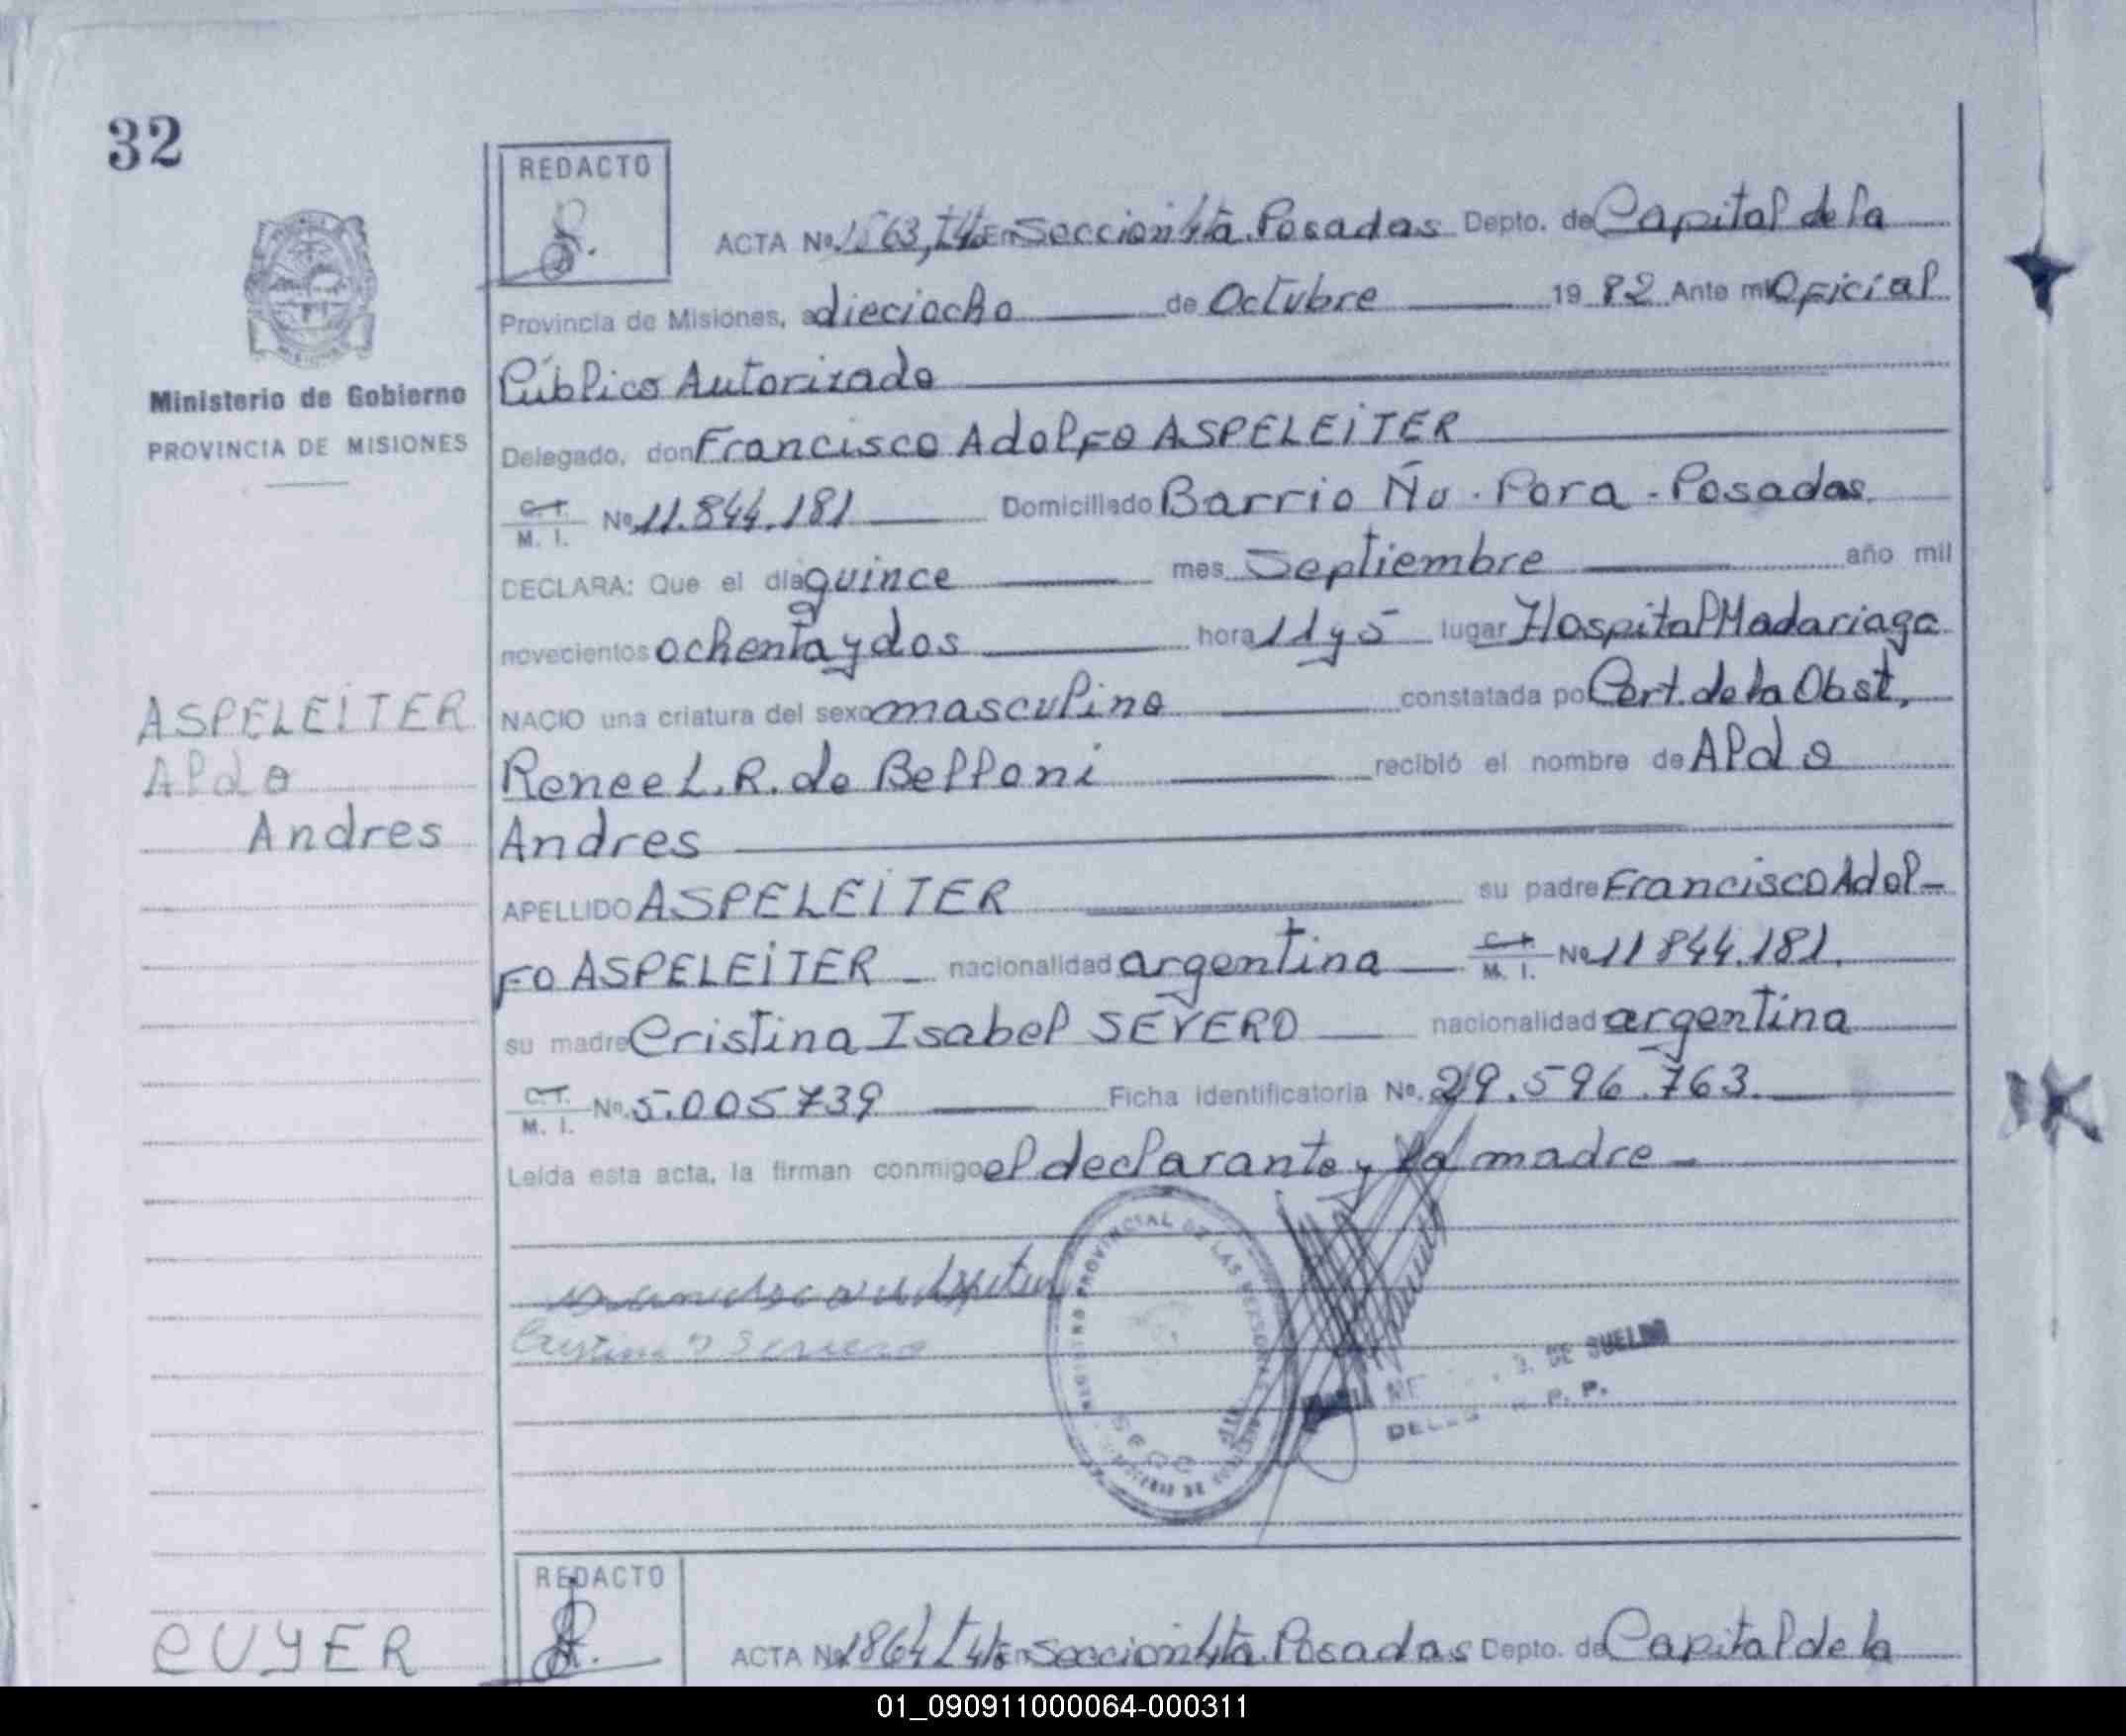 32
REDACTO
ACTA No 1863, T4o En Sección 4ta. Posadas Depto. de Capital de la
Provincia de Misiones, a dieciocho de Octubre 1982 Ante mi Oficial
Público Autorizado
Ministerio de Gobierno
PROVINCIA DE MISIONES
Delegado, don Francisco Adolfo ASPELEiTER
C.I. M. I. No 11.844.181 Domiciliado Barrio Ñu - Pora - Posadas
DECLARA: Que el día quince mes Septiembre año mil
novecientos ochenta y dos hora 11 y 5 lugar Hospital Madariaga
ASPELEiTER
NACIO una criatura del sexo masculino constatada por Cert. de la Obst,
Aldo
Renee L. R. de Belloni recibió el nombre de Aldo
Andres
Andres
APELLIDO ASPELEiTER su padre Francisco Adol-
Fo ASPELEiTER nacionalidad argentina C.I. M. I. No 11844.181.
su madre Cristina Isabel SEVERO nacionalidad argentina
C.I. M. I. No. 5.005739 Ficha identificatoria No. 29.596.763
Leída esta acta, la firman conmigo el declarante y la madre
REGISTRO PROVINCIAL DE LAS PERSONAS
DE SUELDO
CUYER
REDACTO
ACTA No 1864 T4o En Sección 4ta. Posadas Depto. de Capital de la
01_090911000064-000311